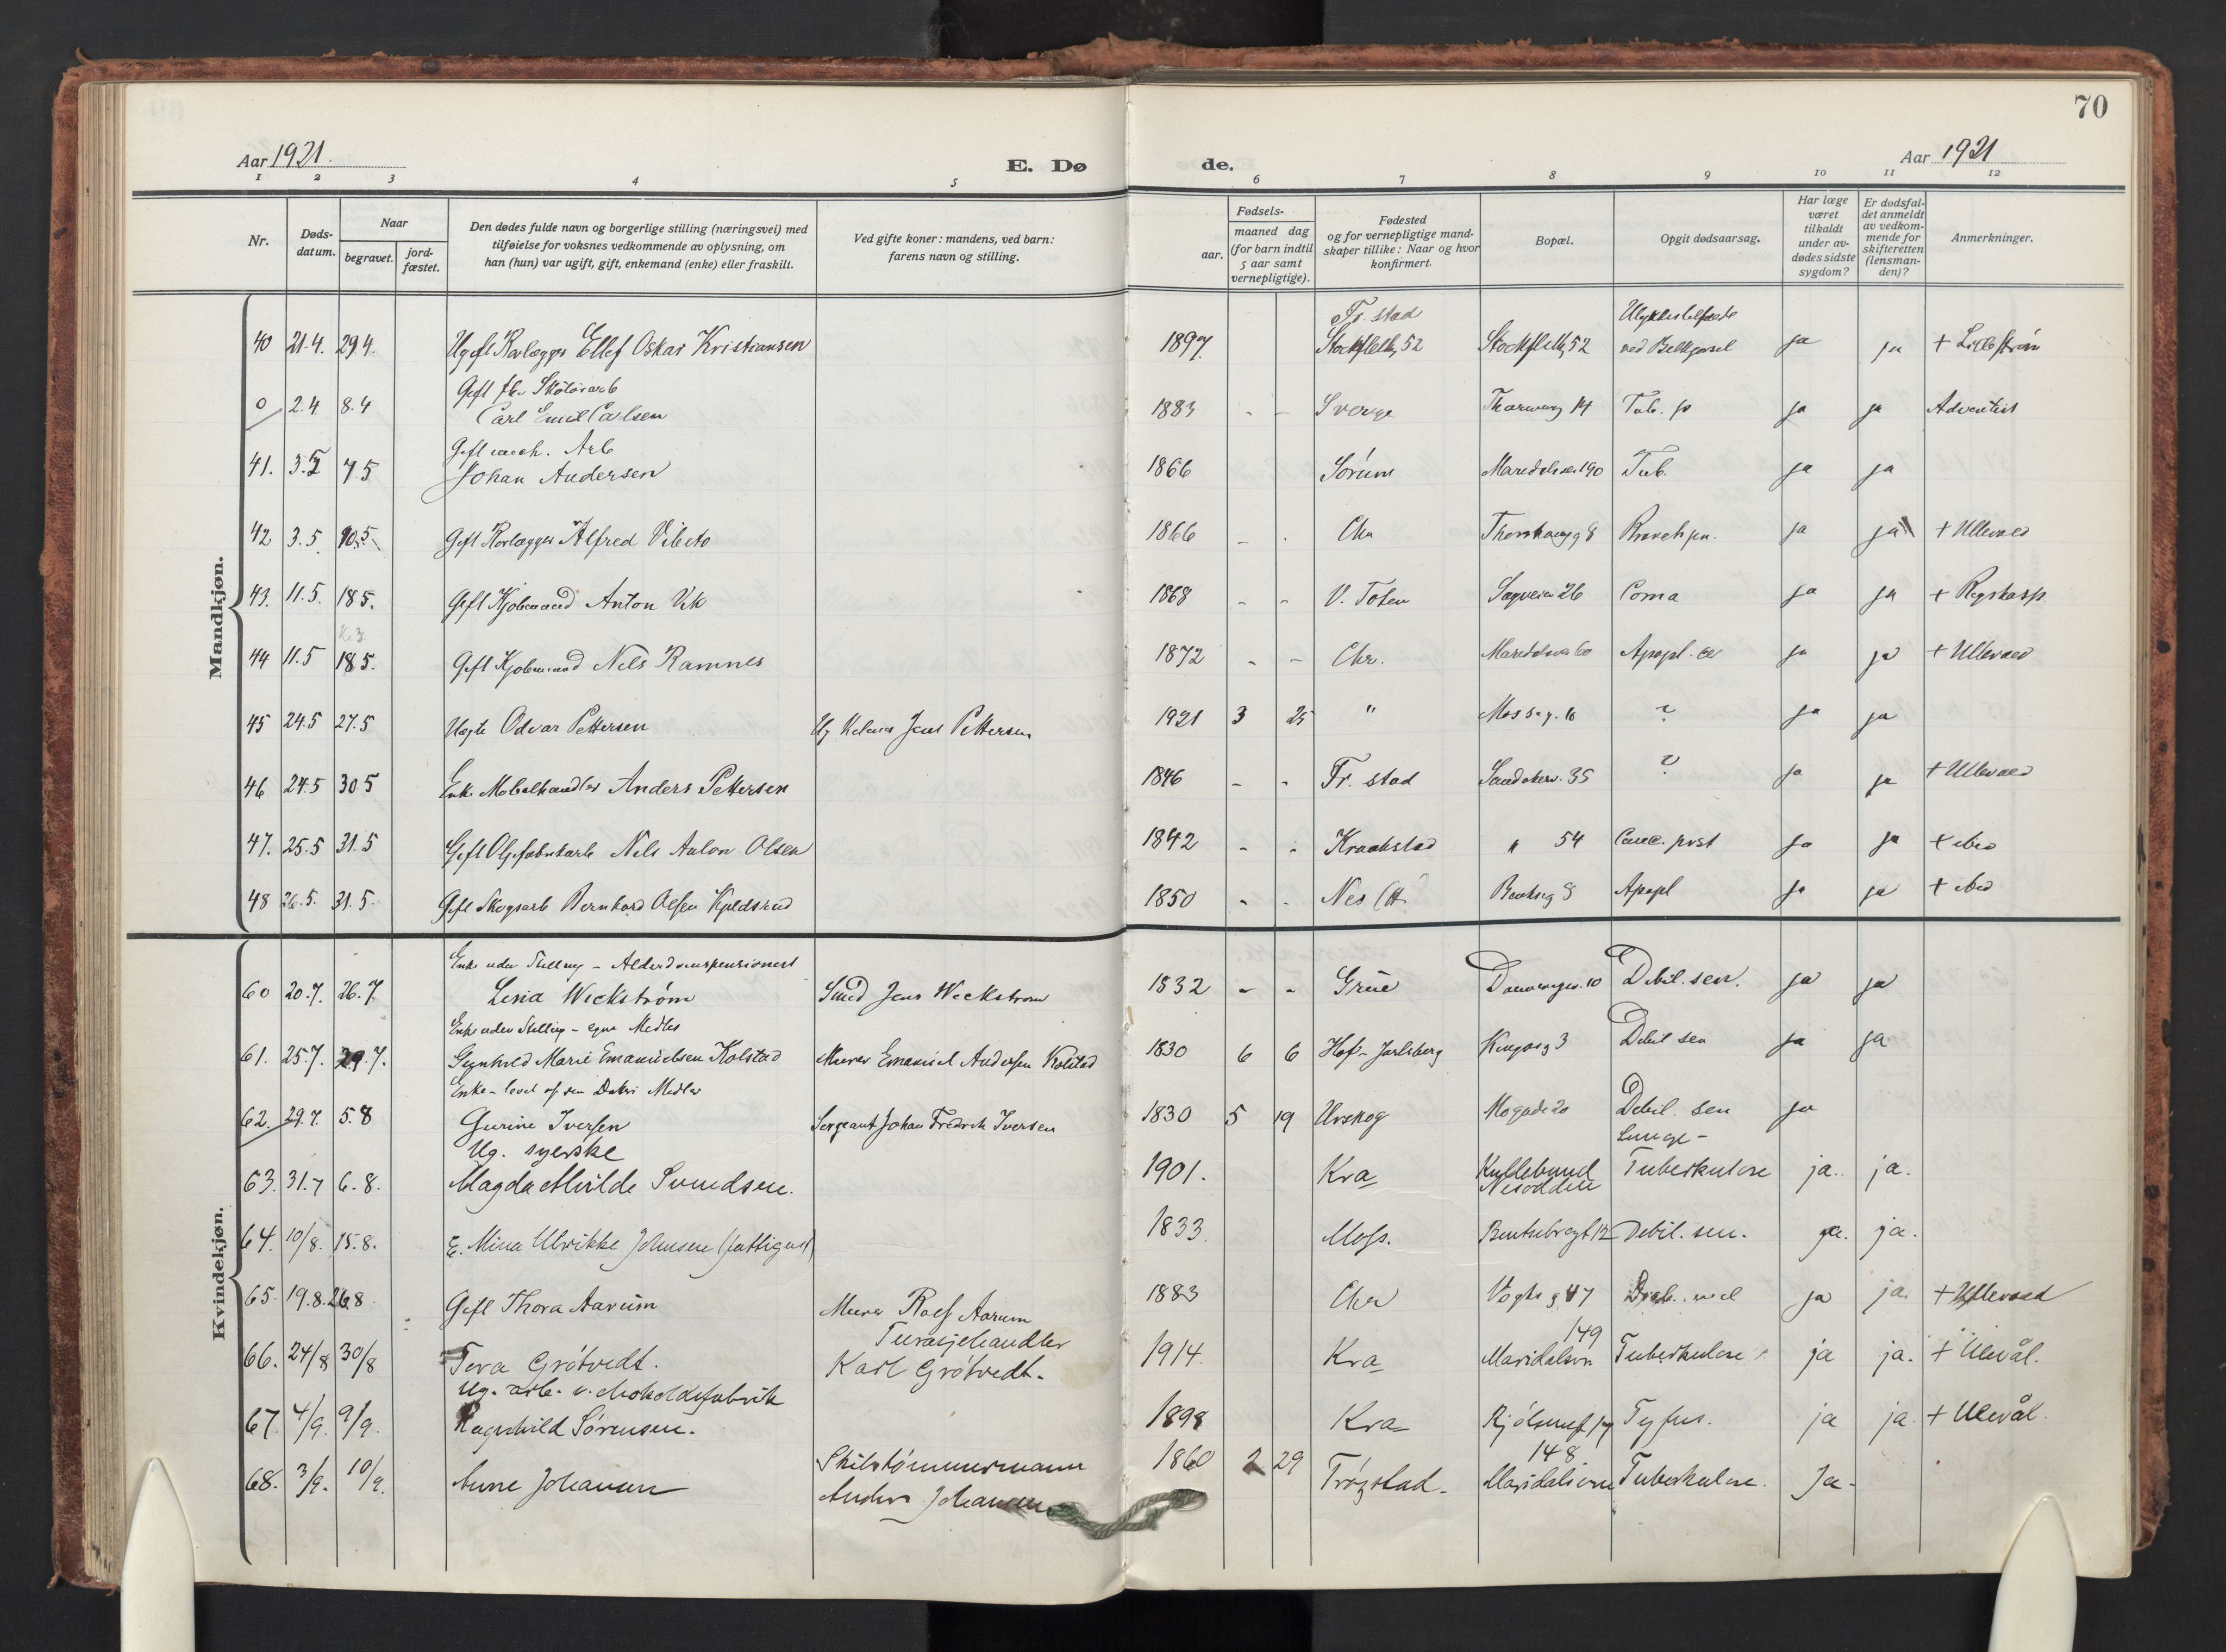 70
Aar 1921.
E. Dø de.
Aar 1921
1 2 3 4 5 6 7 8 9 10 11 12
Nr.
Døds-
datum.
Naar
begravet.
jord-
fæstet.
Den dødes fulde navn og borgerlige stilling (næringsvei) med
tilføielse for voksnes vedkommende av oplysning, om
han (hun) var ugift, gift, enkemand (enke) eller fraskilt.
Ved gifte koner: mandens, ved barn:
farens navn og stilling.
Fødsels-
aar.
maaned dag
(for barn indtil
5 aar samt
vernepligtige).
Fødested
og for vernepligtige mand-
skaper tillike: Naar og hvor
konfirmert.
Bopæl.
Opgit dødsaarsag.
Har læge
været
tilkaldt
under av-
dødes sidste
sygdom?
Er dødsfal-
det anmeldt
av vedkom-
mende for
skifteretten
(lensman-
den)?
Anmerkninger.
Mandkjøn.
Fr. stad
40 21.4. 29.4. Ugift Rørlægger Ellef Oskar Kristiansen 1897. 52 52 ja ja +
Gift
0 2.4 8.4 Carl Emil Carlsen 1883 - - Sverge 14 Tub. p ja ja Adventist
Gift Arb
41. 3.5 7.5 Johan Andersen 1866 Sørum 190 Tub. ja ja
42 3.5. 10.5 Gift Rørlægger Alfred Vibeto 1866 - . Chr 8 ja ja + Ullevaal
43. 11.5. 18.5. Gift Kjøbmand Anton Vik 1868 - - V. Toten Sagveien 26 Coma ja ja +
44 11.5 18.5. Gift Kjøbmand Nils Ramnes 1872 - - Chr. 60 Apopl. ja ja + Ullevaal
45 24.5 27.5 Uegte Odvar Pettersen Ug Jens Pettersen 1921 3 25 " 16 ? ja ja
46 24.5 30.5 Enk. Møbelhandler Anders Pettersen 1846 - - Fr. stad Sandakerv. 35 ? ja ja + Ullevaal
47. 25.5 31.5 Gift Nils Anton Olsen 1842 - - Kraakstad " 54 ja ja + ibid
48 26.5. 31.5. Gift Skogsarb Bernhard Olsen 1850 - - Nes 8 Apopl ja ja + ibid
Kvindekjøn.
Enke uden Stilling - Alderdomspensionert
60 20.7. 26.7. Lina Wickstrøm Jens Wickstrøm 1832 - - Grue 10 Debil. sen. ja ja
Enke uden Stilling - egne Midler
61. 25.7. 29.7. Gunhild Marie Emanuelsen Kolstad Murer Emanuel Andersen Kolstad 1830 6 6 Hof - Jarlsberg 3 Debil sen ja ja
Enke - Midler
62. 29.7. 5.8 Gurine Iversen Sergeant Johan Fredrik Iversen 1830 5 19 Urskog Mogata 20 Debil. sen ja
Ug. syerske Lunge-
63. 31.7 6.8. Magda Alvilde Svendsen. 1901. Kra Nesodden Tuberkulose ja. ja.
64. 10/8. 15.8. E. Mina Ulrikke Johnsen (fattigunst) 1833. Moss. 12 Debil. sen. ja. ja.
65. 19.8. 26.8 Gift Thora Aarum Murer Rolf Aarum 1883 Chr Vogts g. 47 ja ja. + Ullevaal
149
66. 24/8 30/8 Tora Grøtvedt. Karl Grøtvedt. 1914. Kra Maridalsvn Tuberkulose ja ja. + Ulevål.
Ug. arb. v. chokoladefabrik
67. 4/9. 9/9. Ragnhild Sørensen. 1898 Kra Tyfus. ja ja. + Ulevål.
148
68. 3/9. 10/9. Anne Johansen Skibstømmermann 1860 2 29 Trøgstad. Maridalsvn Tuberkulose. Ja-
Anders Johansen